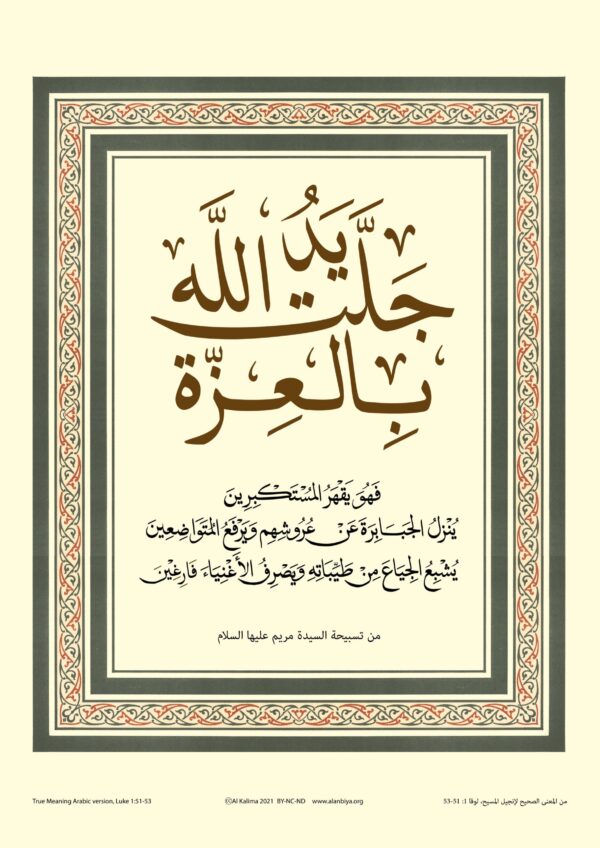 جَلَّت يَدُ اللَّه
بِالعِزّة
فَهُوَ يَقْهَرُ المُسْتَكْبِرِينَ
يُنْزِلُ الجَبَابِرَةَ عَنْ عُرُوشِهِم وَيَرْفَعُ المُتَوَاضِعِينَ
يُشْبِعُ الجِيَاعَ مِنْ طَيِّبَاتِهِ وَيَصْرِفُ الأَغْنِيَاءَ فَارِغْيْنَ
من تسبيحة السيدة مريم عليها السلام
True Meaning Arabic version, Luke 1:51-53
©Al Kalima 2021 BY-NC-ND www.alanbiya.org
من المعنى الصحيح لإنجيل المسيح، لوقا 1: 51-53